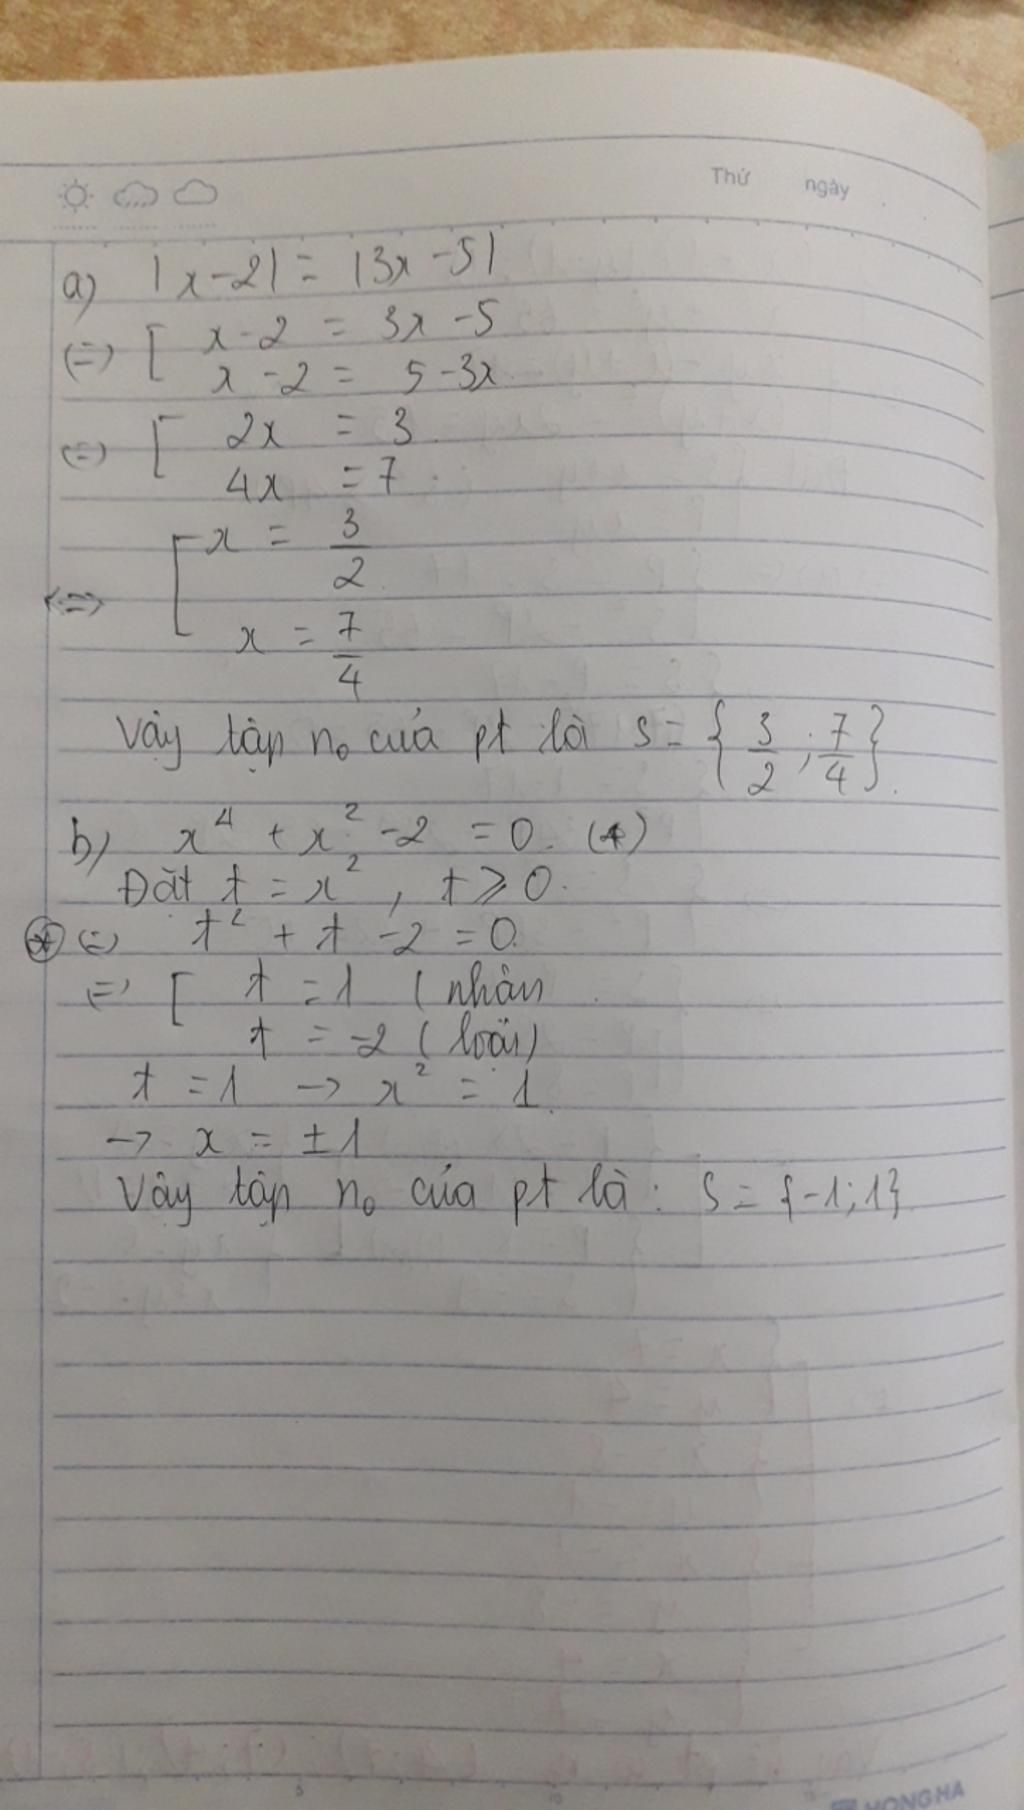 Thứ ngày
a) |x-2| = |3x-5|
(=) [ x-2 = 3x-5
x-2 = 5-3x
(=) [ 2x = 3
4x = 7
<=> [ x = 3/2
x = 7/4
Vậy tập n₀ của pt là S = { 3/2 ; 7/4 }.
b) x⁴ + x² - 2 = 0. (*)
Đặt t = x² , t ≥ 0.
(*) (=) t² + t - 2 = 0.
(=) [ t = 1 ( nhận
t = -2 ( loại)
t = 1 -> x² = 1
-> x = ±1
Vậy tập n₀ của pt là : S = {-1; 1}
5 10 15
HONG HA